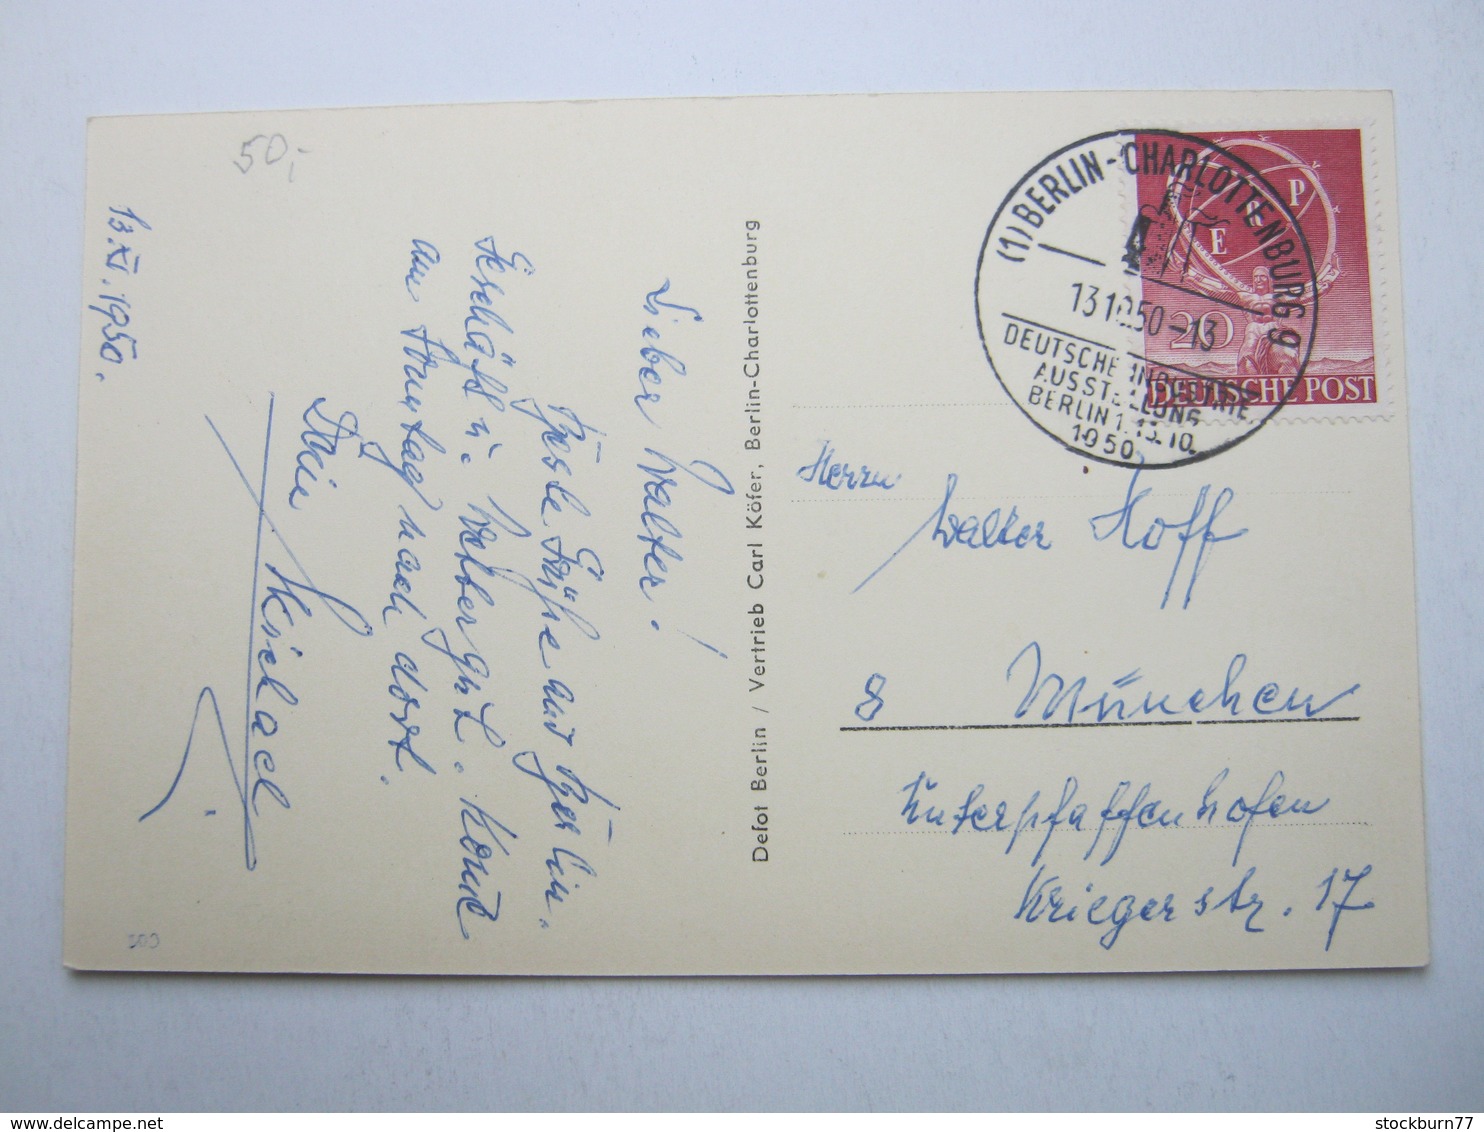 50,-
13.XI.1950.
Lieber Walter!
Beste Grüße aus Berlin.
Geschäft u. Wetter gut. Komme
am Sonntag nach dort.
Dein
Defot Berlin / Vertrieb Carl Köfer, Berlin-Charlottenburg
(1) BERLIN-CHARLOTTENBURG 9
13 10.50-13
DEUTSCHE INDUSTRIE
AUSSTELLUNG
BERLIN 1.-15.10.
1950
E R P
20
DEUTSCHE POST
Herrn
Walter Hoff
8 München
Unterpfaffenhofen
Kriegerstr. 17
203
stockburn77